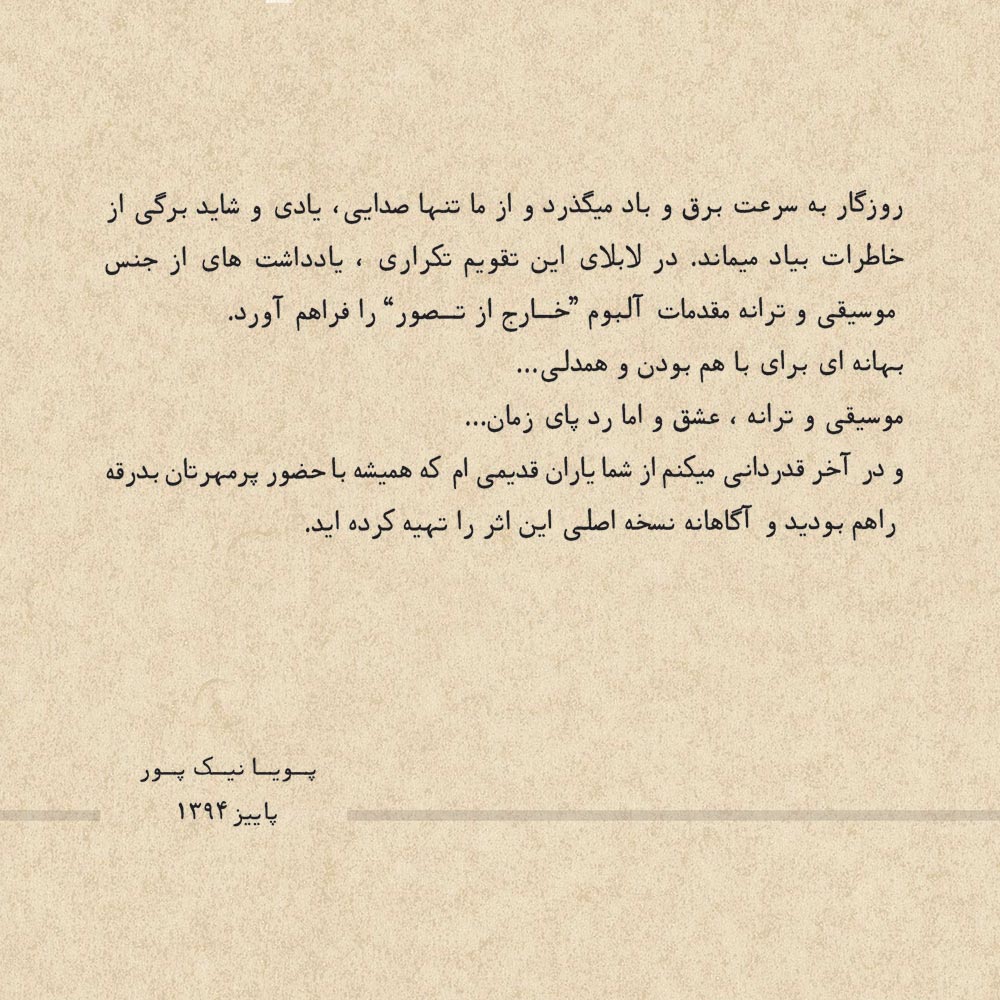 روزگار به سرعت برق و باد میگذرد و از ما تنها صدایی، یادی و شاید برگی از
خاطرات بیاد میماند. در لابلای این تقویم تکراری ، یادداشت های از جنس
موسیقی و ترانه مقدمات آلبوم ”خــارج از تــصور“ را فراهم آورد.
بهانه ای برای با هم بودن و همدلی...
موسیقی و ترانه ، عشق و اما رد پای زمان...
و در آخر قدردانی میکنم از شما یاران قدیمی ام که همیشه با حضور پرمهرتان بدرقه
راهم بودید و آگاهانه نسخه اصلی این اثر را تهیه کرده اید.
پــویــا نیــک پــور
پاییز ۱۳۹۴